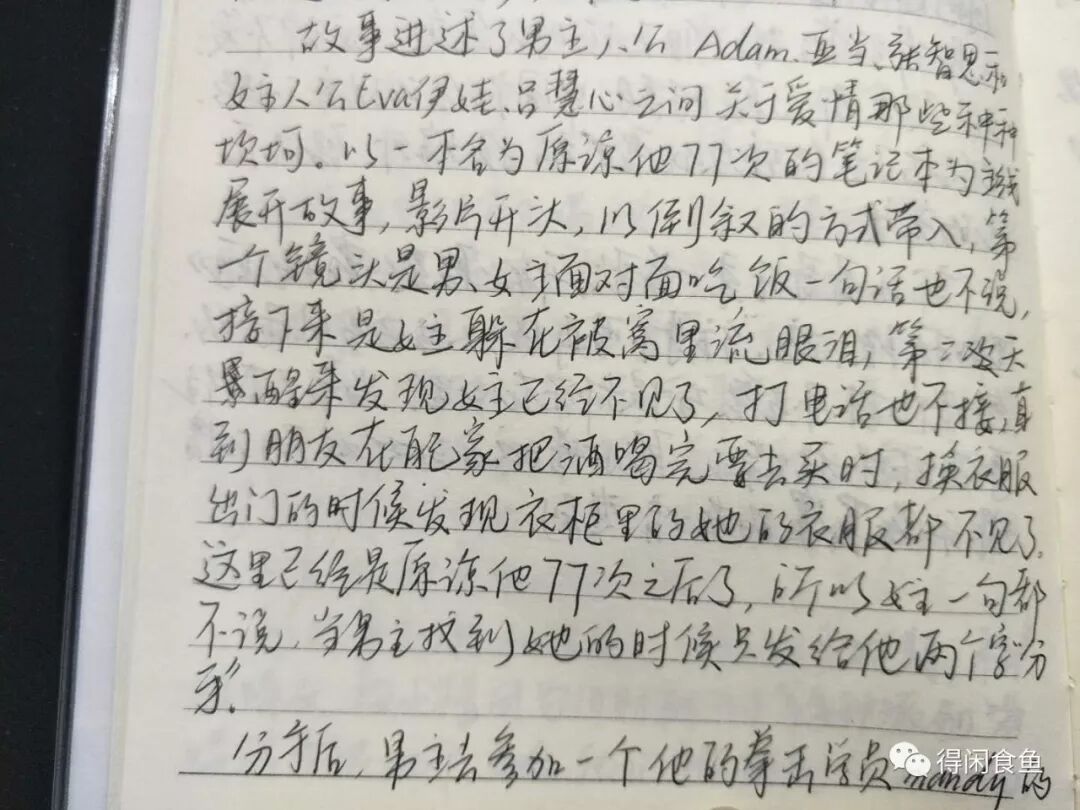 故事进述了男主人公 Adam、亚当、张智思和
女主人公Eva伊娃、吕慧心之间关于爱情那些种种
坎坷。以一本名为原谅他77次的笔记本为主线
展开故事,影片开头,以倒叙的方式带入,第
一个镜头是男、女主面对面吃饭一句话也不说,
接下来是女主躲在被窝里流眼泪,第二次天
醒来发现女主已经不见了,打电话也不接,直
到朋友在家把酒喝完要去买时,换衣服
出门的时候发现衣柜里的她的衣服都不见了。
这里已经是原谅他77次之后了,所以女主一句都
不说,当男主找到她的时候只发给他两个字“分
手”。
分手后,男主去参加一个他的拳击学员mandy的
得闲食鱼